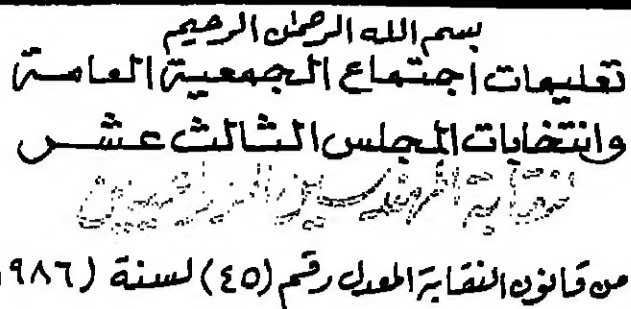 بسم الله الرحمن الرحيم
تعليمات اجتماع الجمعية العامة
وانتخابات المجلس الثالث عشر
نقابة المهندسين الزراعيين
من قانون النقابة المعدل رقم (٤٥) لسنة (١٩٨٦